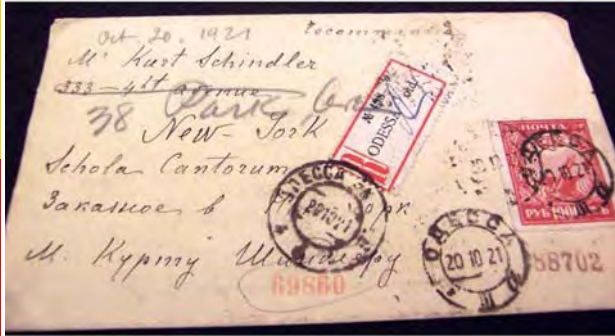 Oct. 20. 1921
Mr Kurt Schindler
333 – 4st avenue
38 Park
New-York
Schola Cantorum
Заказное в
М. Курту Шиндлеру
R ODESSA
ОДЕССА
20 10 21
ОДЕССА
20 10 21
ПОЧТА
РУБ
69860
88702